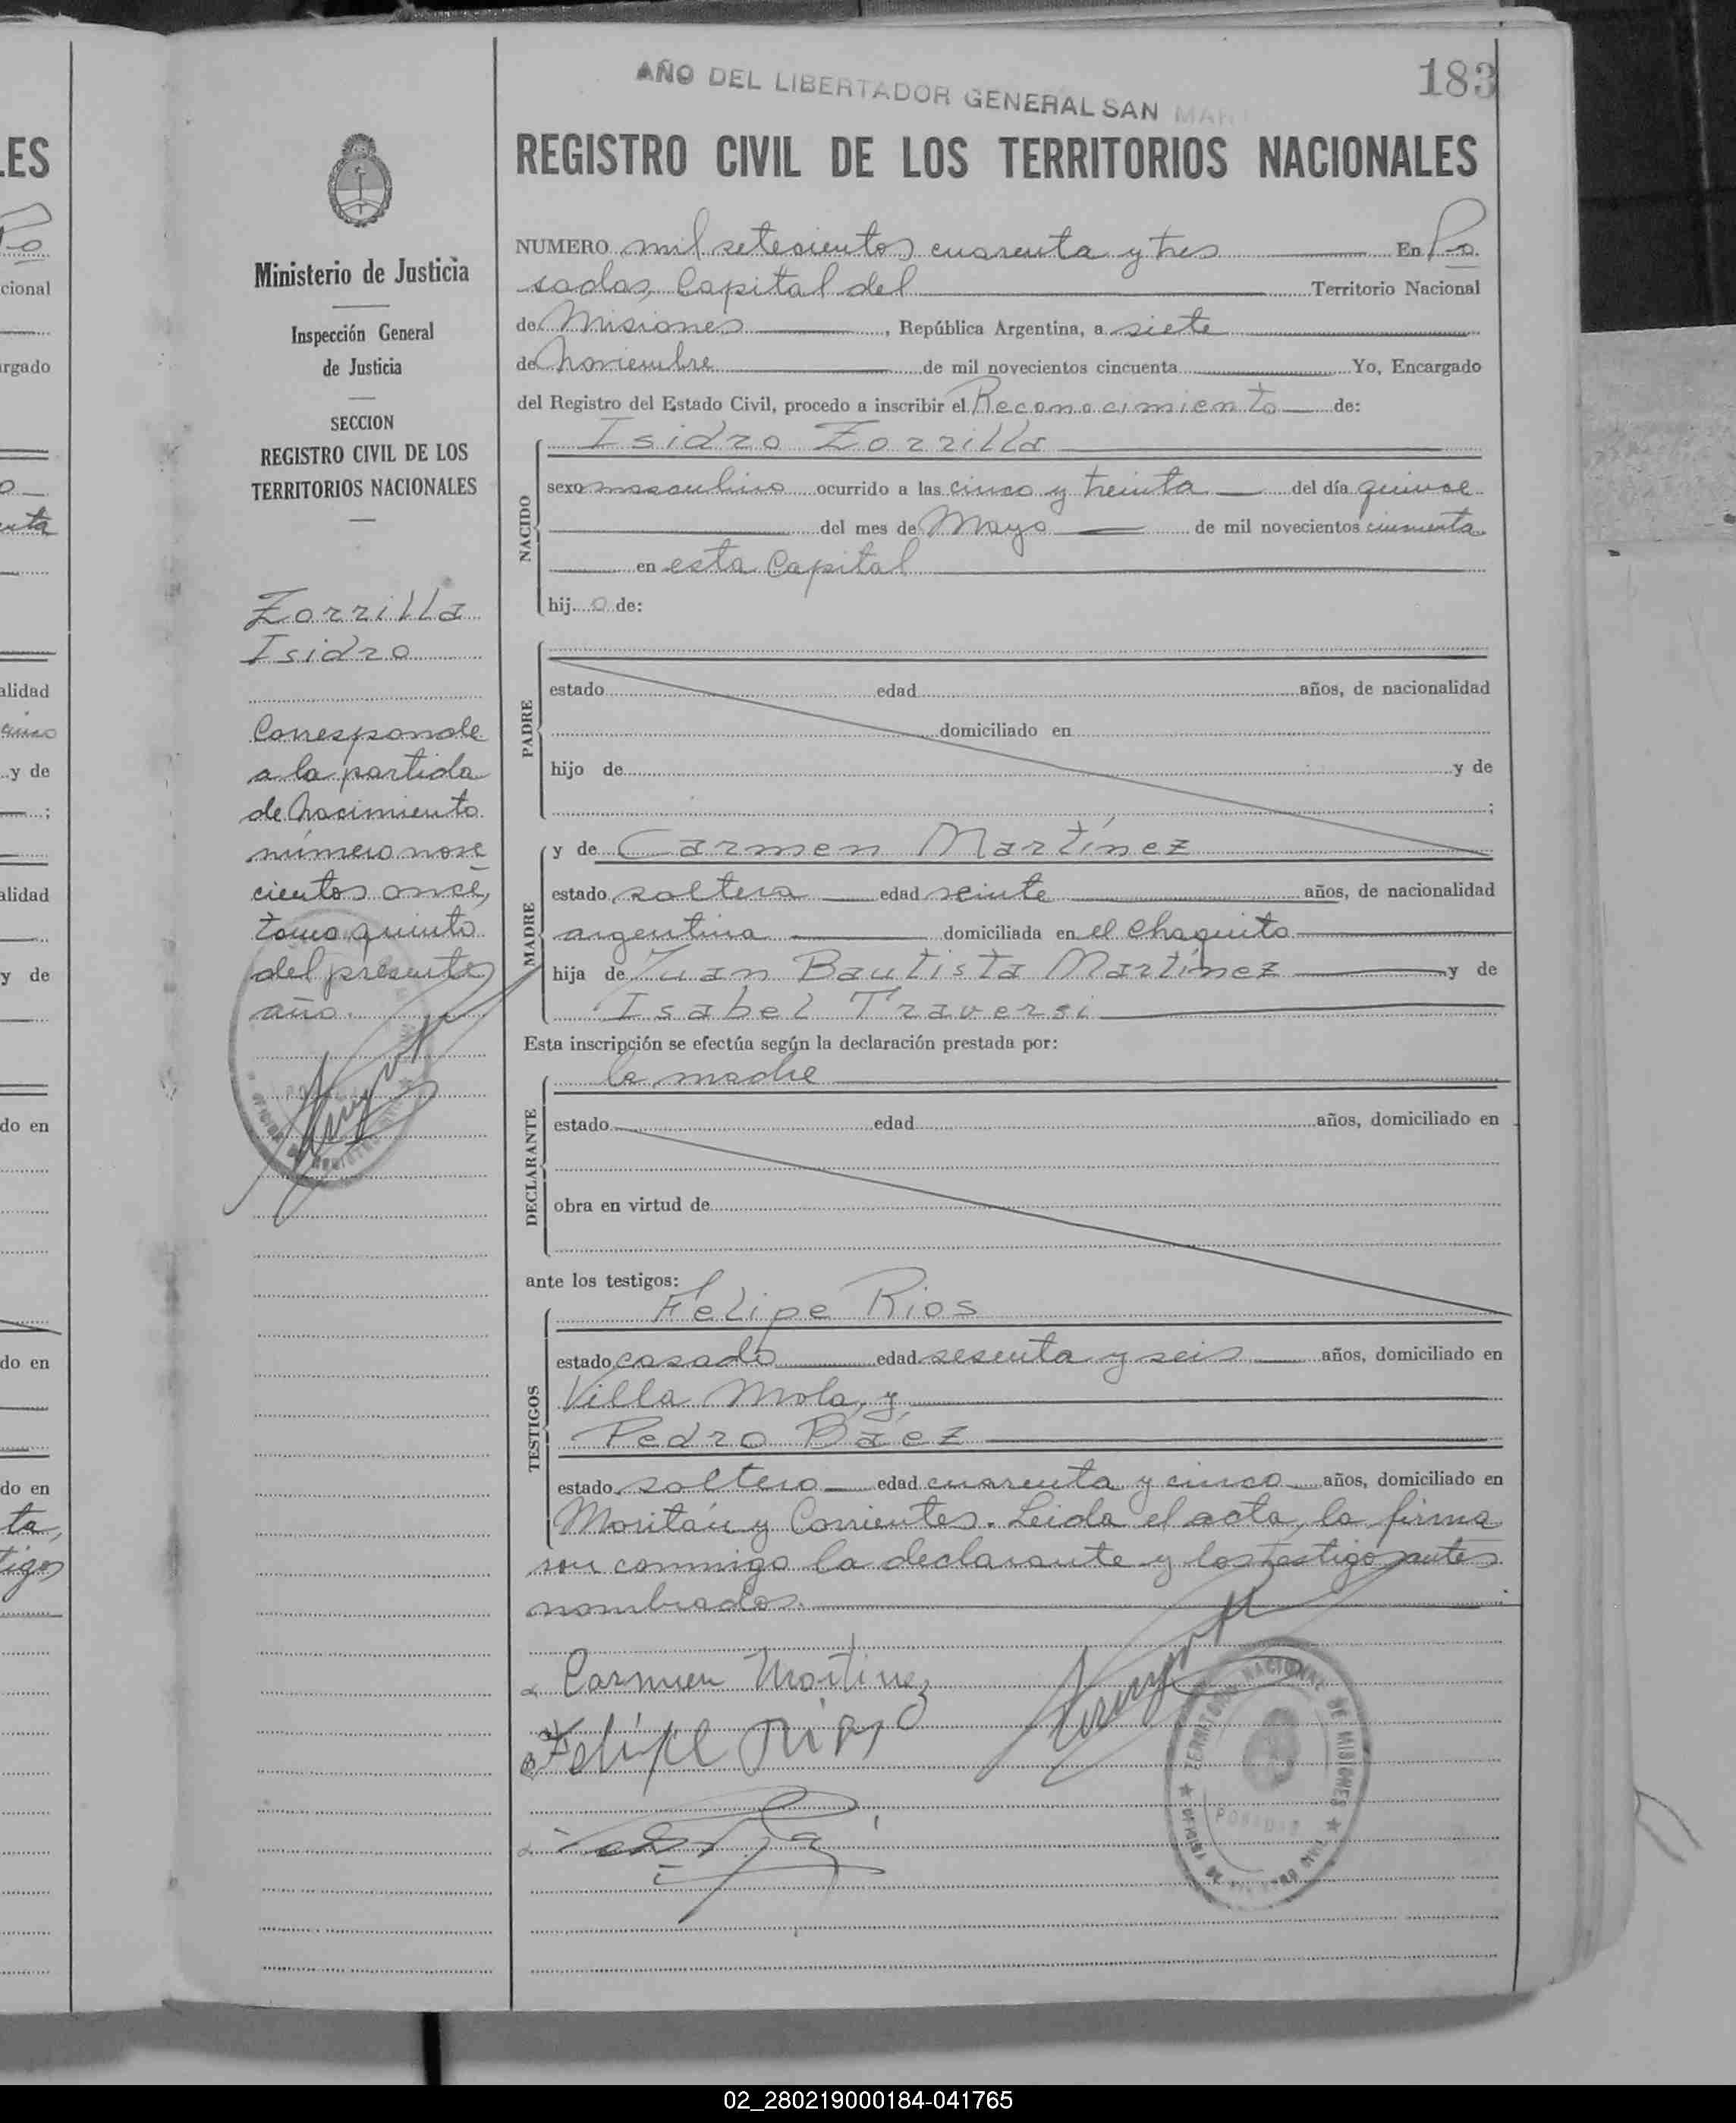 AÑO DEL LIBERTADOR GENERAL SAN MAR
183
REGISTRO CIVIL DE LOS TERRITORIOS NACIONALES
Ministerio de Justicia
Inspección General
de Justicia
SECCION
REGISTRO CIVIL DE LOS
TERRITORIOS NACIONALES
Zorrilla
Isidro
Corresponde
a la partida
de Nacimiento
número nove
cientos once,
tomo quinto
del presente
año.
NUMERO mil setecientos cuarenta y tres En Po
sadas, Capital del Territorio Nacional
de Misiones, República Argentina, a siete
de Noviembre de mil novecientos cincuenta Yo, Encargado
del Registro del Estado Civil, procedo a inscribir el Reconocimiento de:
NACIDO
Isidro Zorrilla
sexo masculino ocurrido a las cinco y treinta del día quince
del mes de Mayo de mil novecientos cincuenta
en esta Capital
hijo de:
PADRE
estado edad años, de nacionalidad
domiciliado en
hijo de y de
;
MADRE
y de Carmen Martínez
estado soltera edad veinte años, de nacionalidad
argentina domiciliada en el Chaquito
hija de Juan Bautista Martínez y de
Isabel Traversi
Esta inscripción se efectúa según la declaración prestada por:
DECLARANTE
la madre
estado edad años, domiciliado en
obra en virtud de
ante los testigos:
TESTIGOS
Felipe Rios
estado casado edad sesenta y seis años, domiciliado en
Villa Mola, y
Pedro Báez
estado soltero edad cuarenta y cinco años, domiciliado en
y Corrientes. Leida el acta, la firma
son conmigo la declarante y los testigos antes
nombrados.
Carmen Martinez
Felipe Rios
TERRITORIO NACIONAL DE MISIONES
POSADAS
02_280219000184-041765